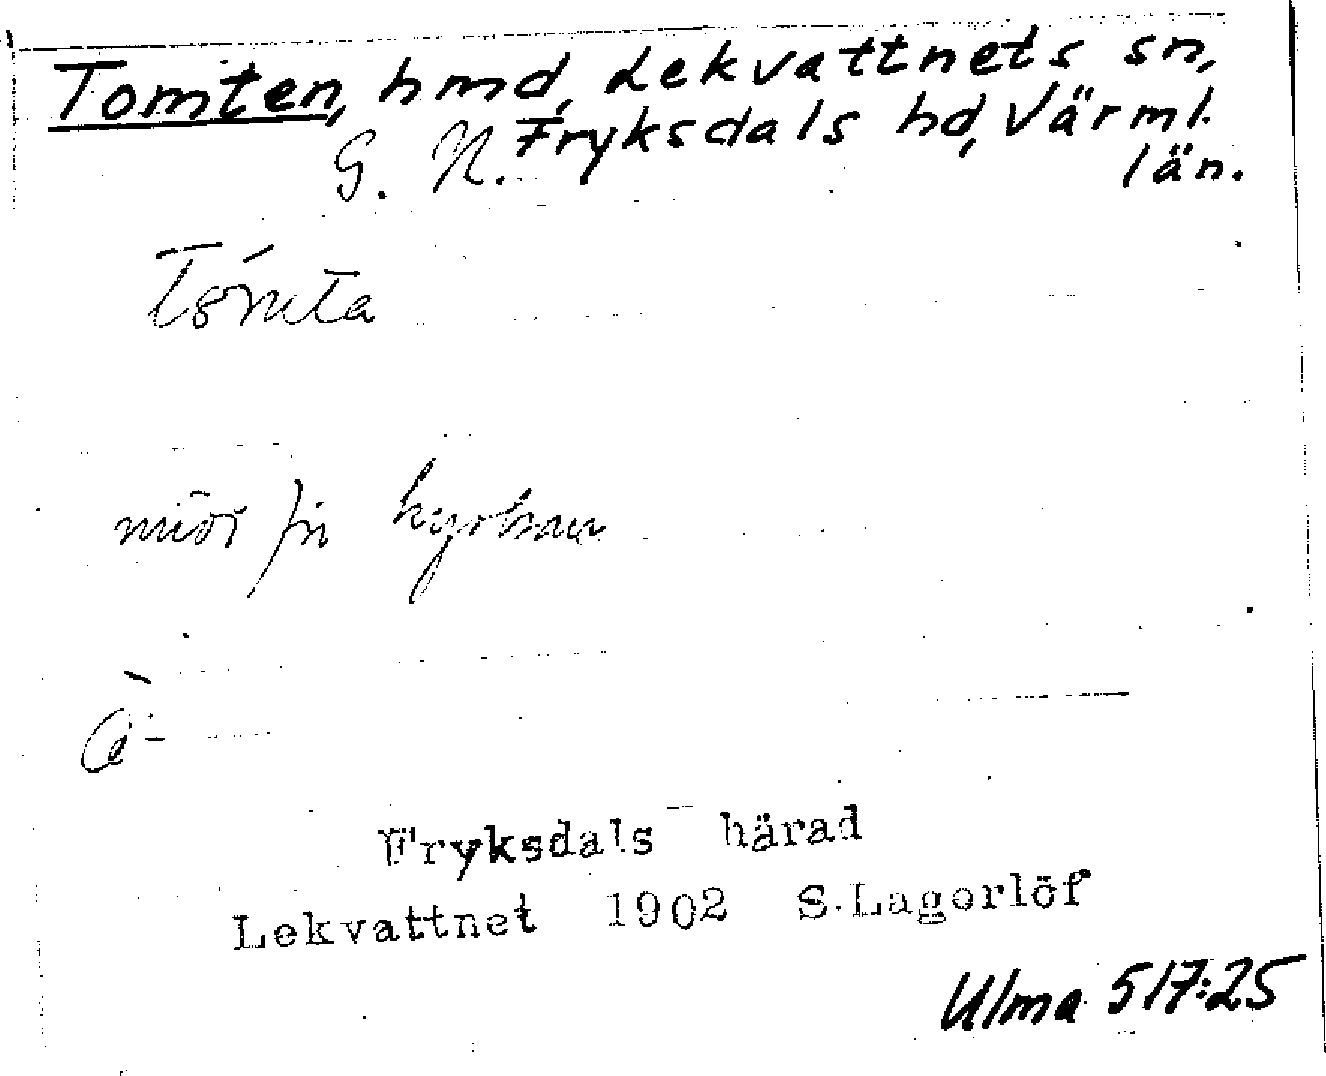 Tomten, hmd, Lekvattnets sn,
G. N. Fryksdals hd, Värml.
län.
Tómta
Fryksdals härad
Lekvattnet 1902 S.Lagerlöf
Ulma 517:25